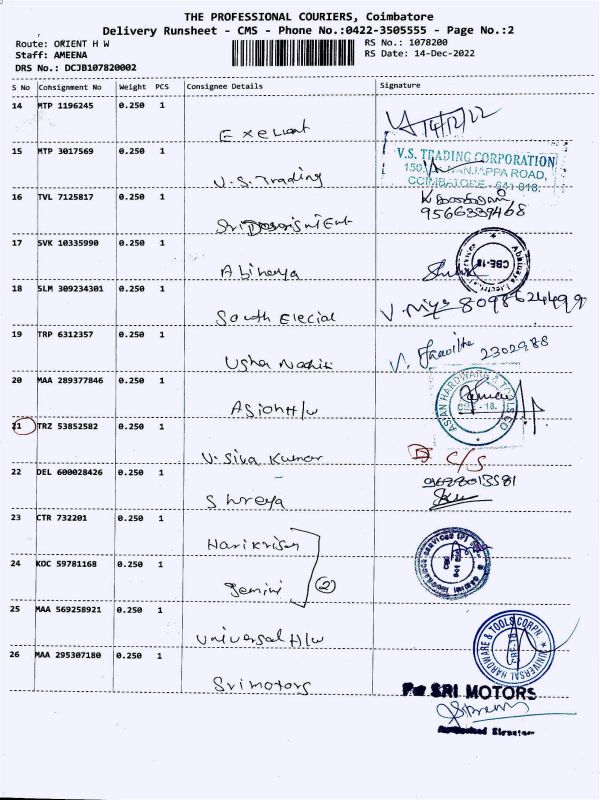 THE PROFESSIONAL COURIERS, Coimbatore
Delivery Runsheet - CMS - Phone No.:0422-3505555 - Page No.:2
Route: ORIENT H W
Staff: AMEENA
DRS No.: DCJB107820002
RS No.: 1078200
RS Date: 14-Dec-2022
S No Cohsignment No Weight PCS Consignee Details Signature
14 MTP 1196245 0.250 1
Exellent 14/12/22
15 MTP 3017569 0.250 1
V.S. Trading
V.S. TRADING CORPORATION
NANJAPPA ROAD,
COIMBATORE - 641 018.
16 TVL 7125817 0.250 1
9566339468
17 SVK 10335990 0.250 1
Abinaya
CBE-18
18 SLM 309234301 0.250 1
South Elecial V. Priya 8098624499
19 TRP 6312357 0.250 1
Usha 2302988
20 MAA 289377846 0.250 1
Asian H/w
ASIAN HARDWARE & TOOLS CO
CBE - 18.
21 TRZ 53852582 0.250 1
V. Siva Kumar C/S
22 DEL 600028426 0.250 1
Shreya
23 CTR 732201 0.250 1
Harikrisn
24 KOC 59781168 0.250 1
Gemini 2
25 MAA 569258921 0.250 1
Universal H/w
UNIVERSAL HARDWARE & TOOLS CORPN.
CBE-18
26 MAA 295307180 0.250 1
Sri motors
For SRI MOTORS
Authorised Signatory